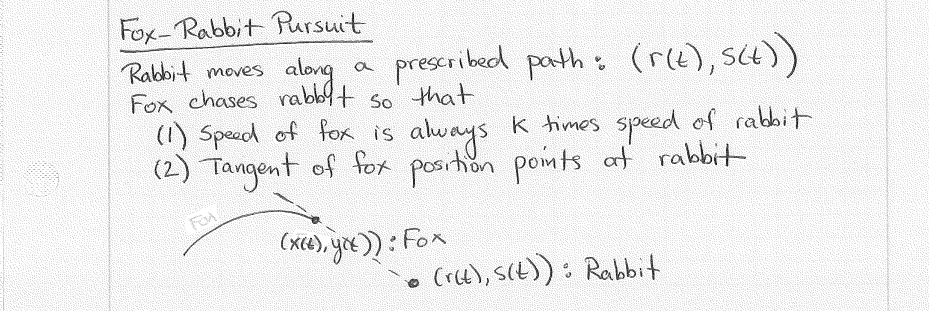 Fox-Rabbit Pursuit
Rabbit moves along a prescribed path: (r(t), s(t))
Fox chases rabbit so that
(1) Speed of fox is always K times speed of rabbit
(2) Tangent of fox position points at rabbit
Fox
(x(t), y(t)): Fox
(r(t), s(t)): Rabbit